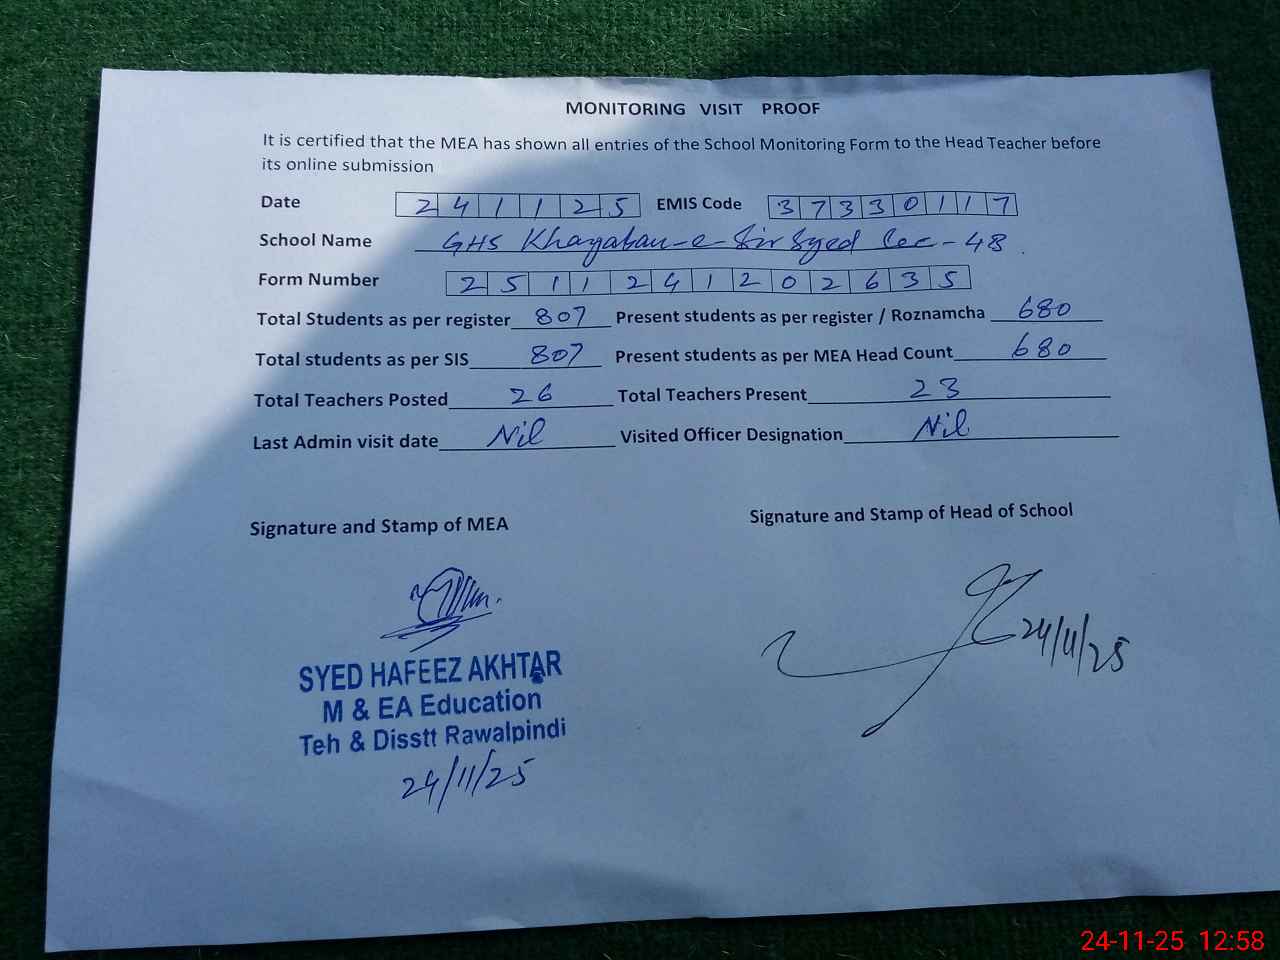 MONITORING VISIT PROOF
It is certified that the MEA has shown all entries of the School Monitoring Form to the Head Teacher before
its online submission
Date 241125 EMIS Code 37330117
School Name GHS Khayaban-e-Sir Syed Sec-48
Form Number 2511241202635
Total Students as per register 807 Present students as per register / Roznamcha 680
Total students as per SIS 807 Present students as per MEA Head Count 680
Total Teachers Posted 26 Total Teachers Present 23
Last Admin visit date Nil Visited Officer Designation Nil
Signature and Stamp of MEA Signature and Stamp of Head of School
24/11/25
SYED HAFEEZ AKHTAR
M & EA Education
Teh & Disstt Rawalpindi
24/11/25
24-11-25 12:58